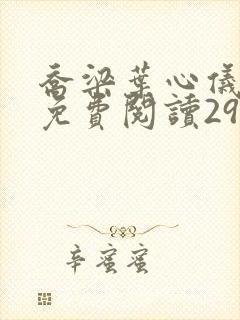 喬梁葉心儀
免費閱讀29
辛蜜蜜